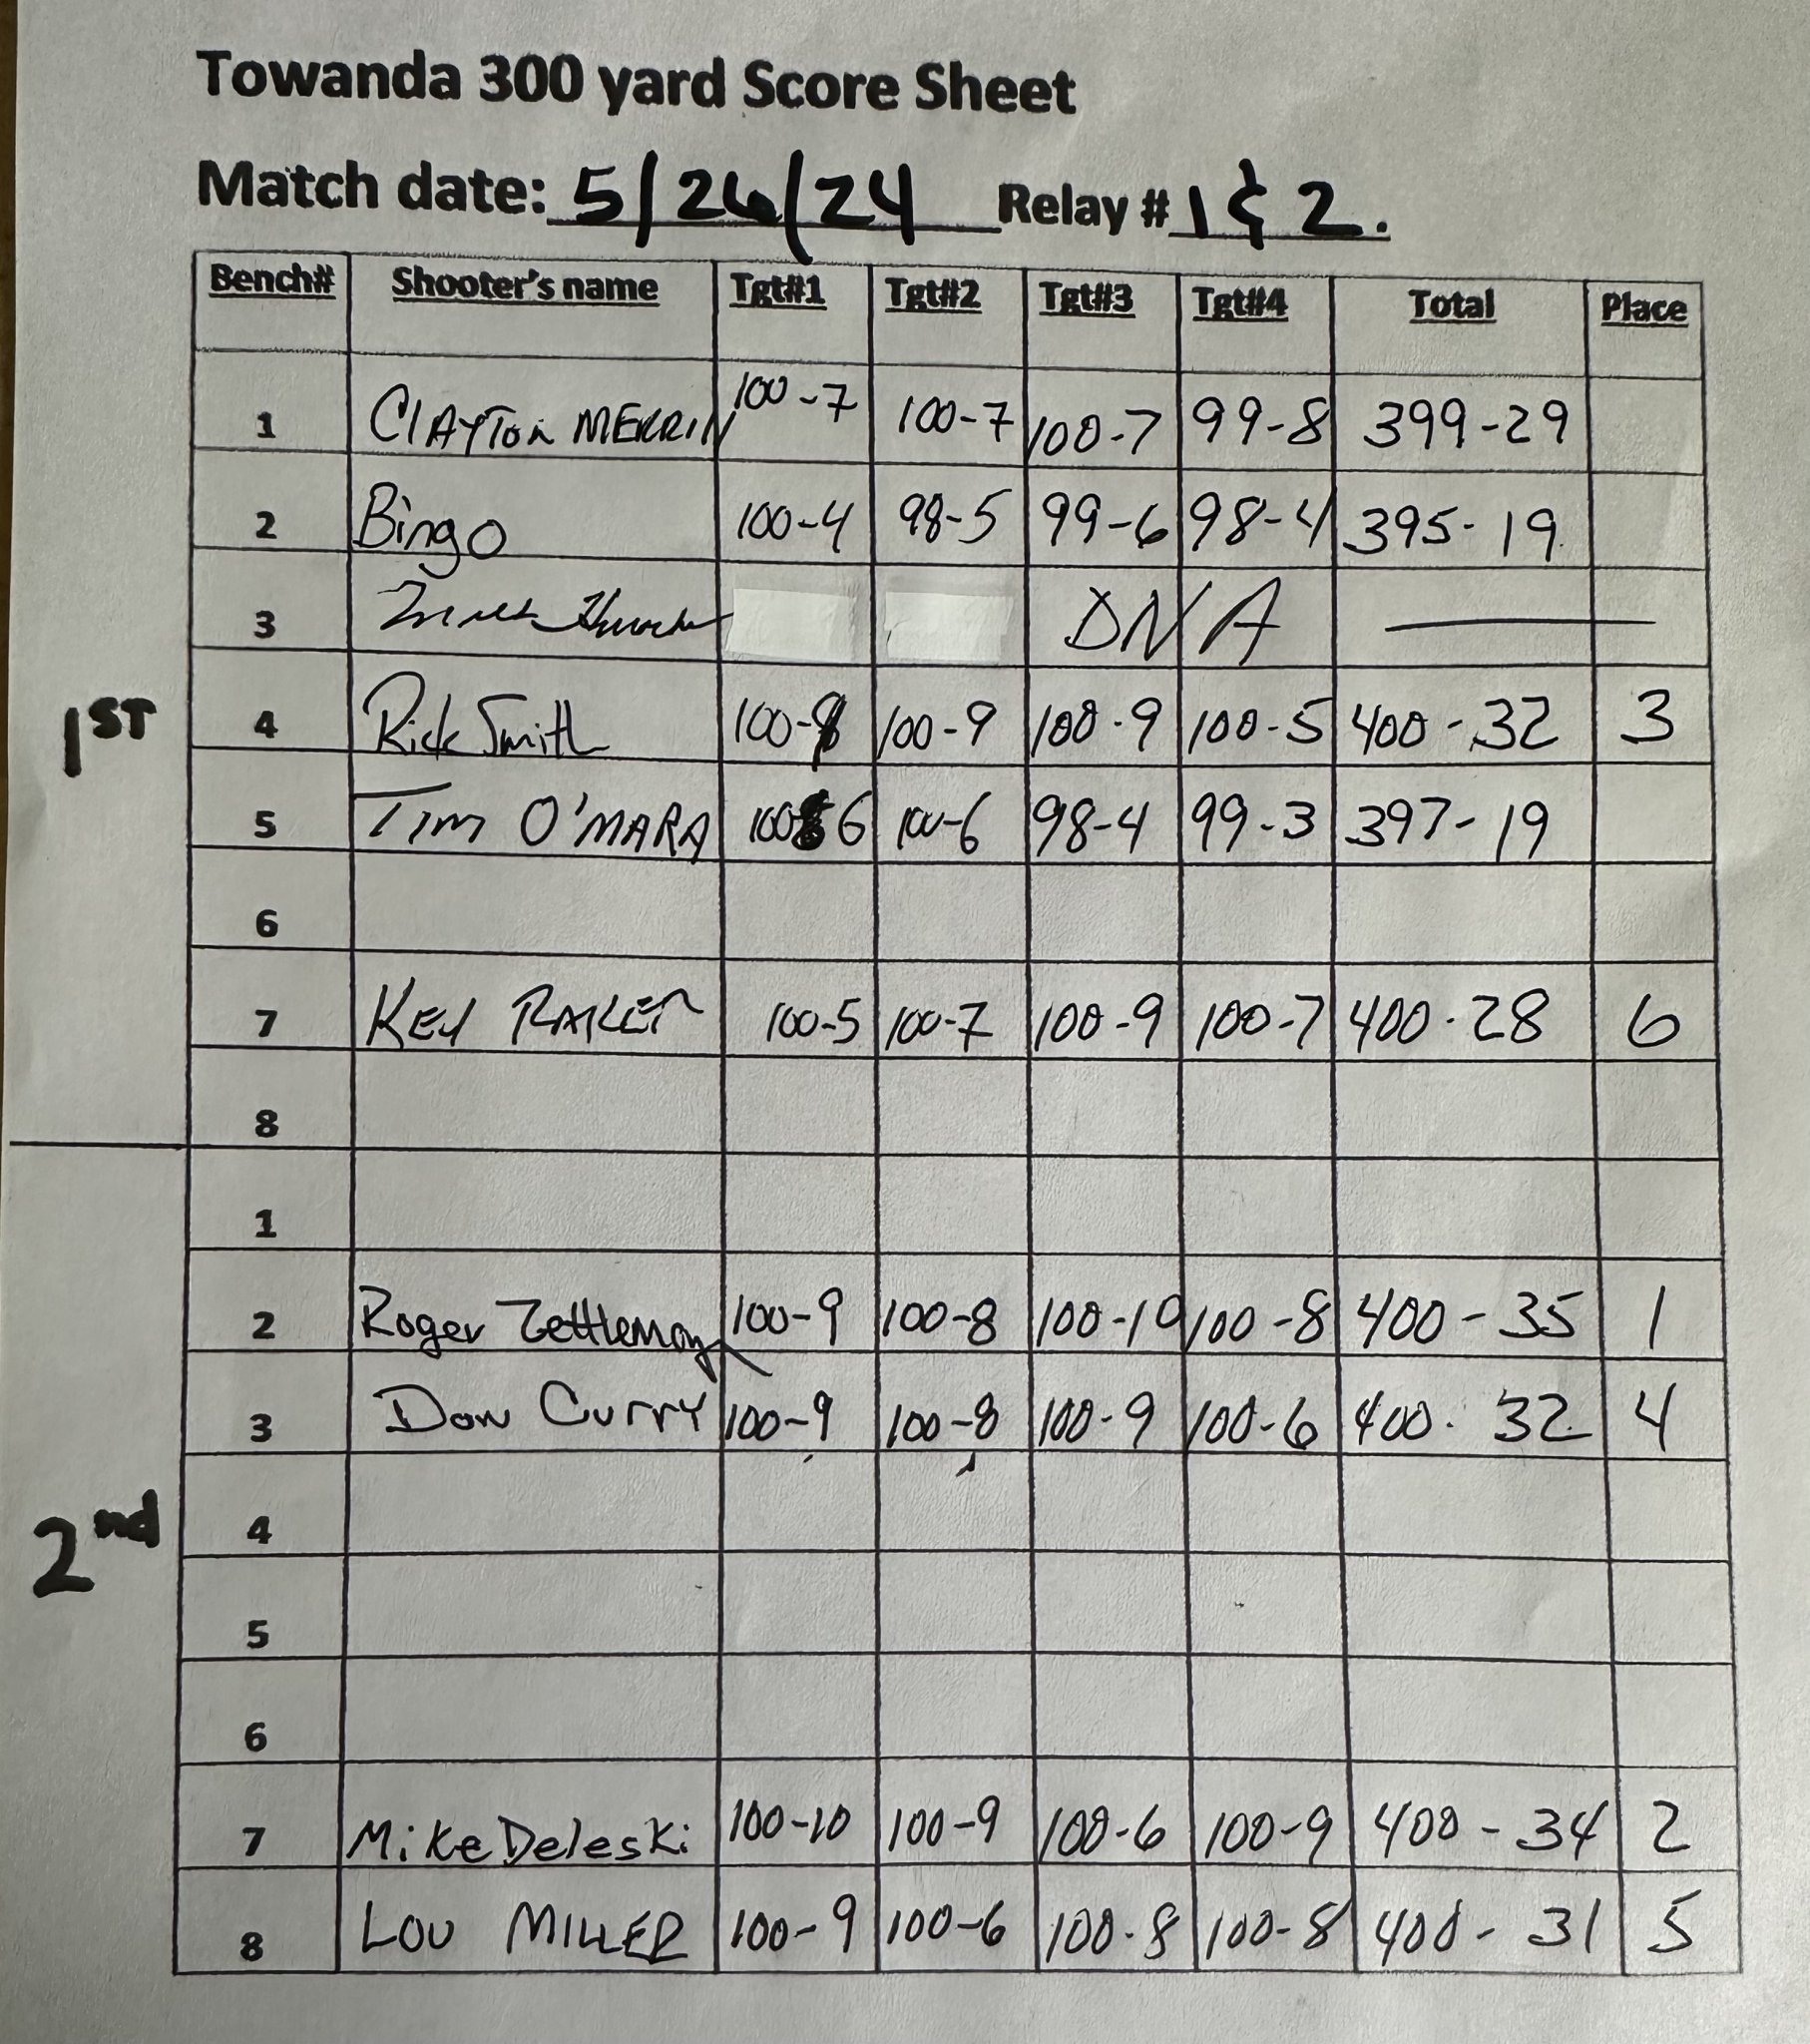 Towanda 300 yard Score Sheet
Match date: 5/26/24 Relay # 1 & 2.
Bench# Shooter's name Tgt#1 Tgt#2 Tgt#3 Tgt#4 Total Place
1 CLAYTON MERRIN 100-7 100-7 100-7 99-8 399-29
2 Bingo 100-4 98-5 99-6 98-4 395-19
3 DNA
1ST
4 Rick Smith 100-9 100-9 100-9 100-5 400-32 3
5 TIM O'MARA 100-6 100-6 98-4 99-3 397-19
6
7 KEN RAKER 100-5 100-7 100-9 100-7 400-28 6
8
1
2 Roger Zettlemoy 100-9 100-8 100-10 100-8 400-35 1
3 Don Curry 100-9 100-8 100-9 100-6 400-32 4
2nd
4
5
6
7 Mike Deleski 100-10 100-9 100-6 100-9 400-34 2
8 LOU MILLER 100-9 100-6 100-8 100-8 400-31 5